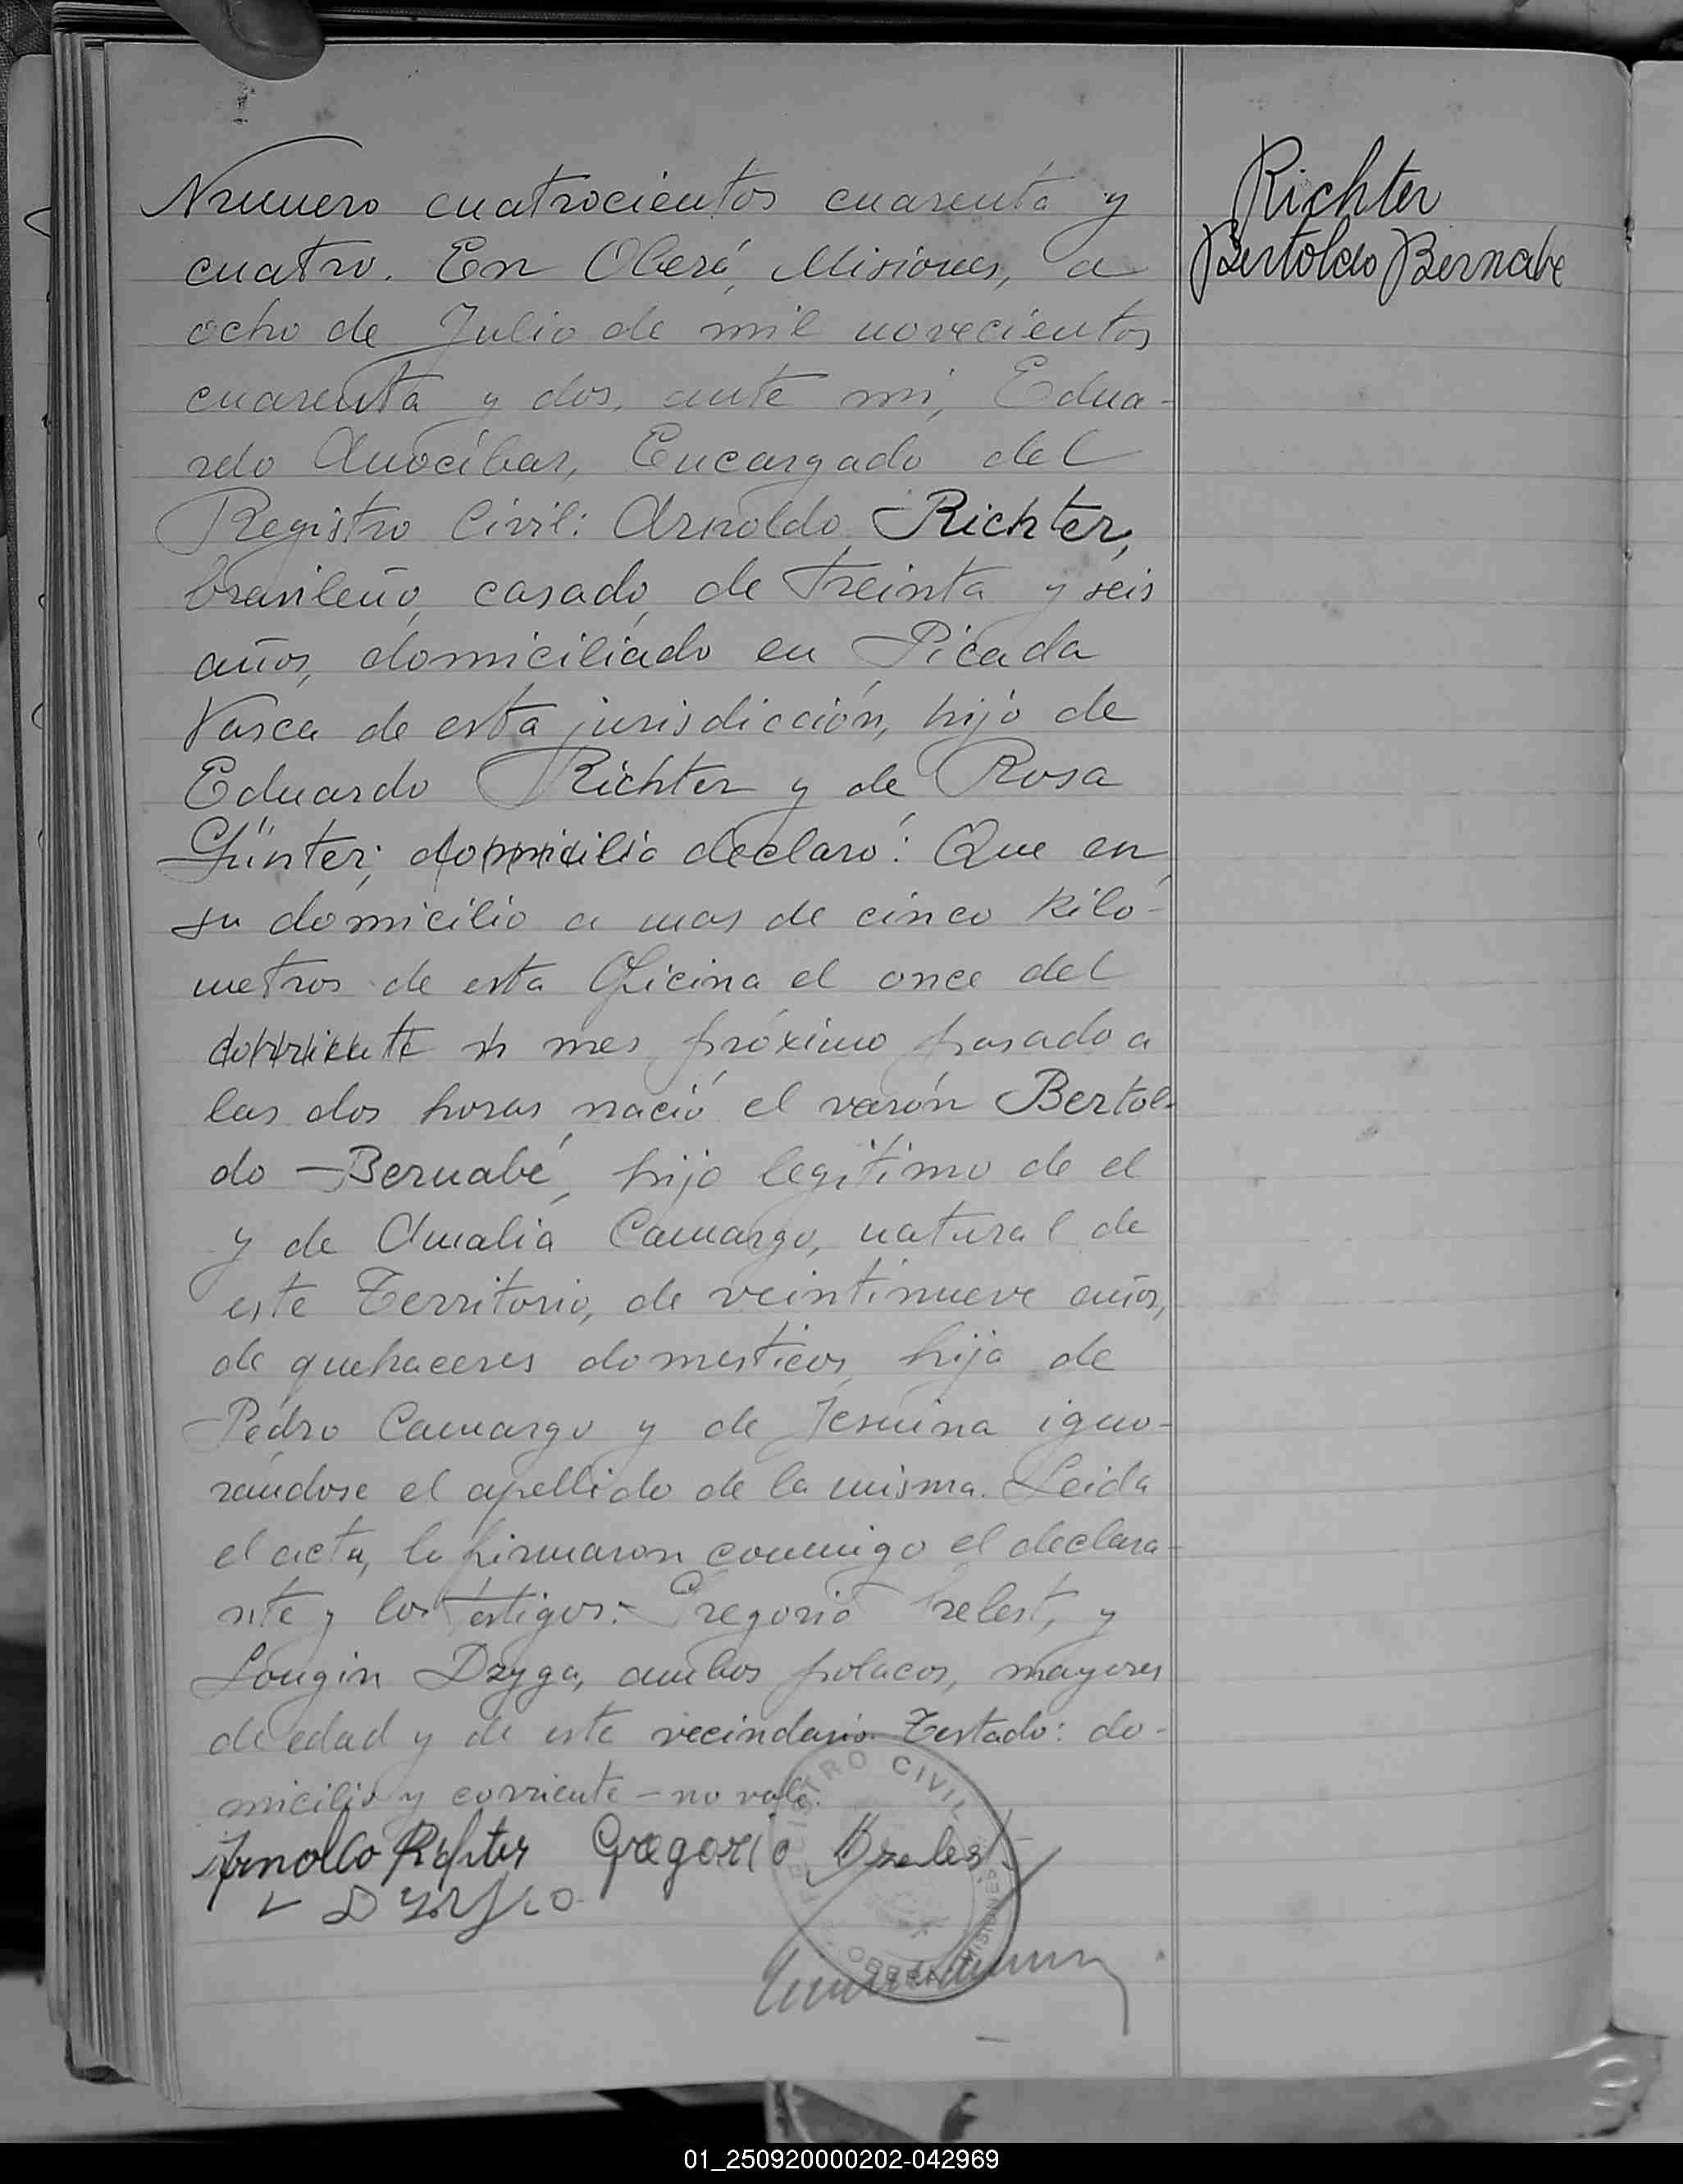 Richter
Bertoldo Bernabe
Numero cuatrocientos cuarenta y
cuatro. En Oberá, Misiones, a
ocho de Julio de mil novecientos
cuarenta y dos, ante mi, Edua-
rdo Anocíbar, Encargado del
Registro Civil: Arnoldo Richter,
brasileño, casado, de treinta y seis
años, domiciliado en Picada
Vasca de esta jurisdicción, hijo de
Eduardo Richter y de Rosa
Günter; domicilio declaró: Que en
su domicilio a mas de cinco kiló-
metros de esta Oficina el once del
corriente mes próximo pasado a
las dos horas nació el varón Bertol-
do Bernabé, hijo legítimo de el
y de Amalia Camargo, natural de
este Territorio, de veintinueve años,
de quehaceres domesticos, hija de
Pedro Camargo y de igno-
rándose el apellido de la misma. Leida
el acta, la firmaron conmigo el declara-
nte y los testigos: Gregorio y
Longin Dzyga, ambos polacos, mayores
de edad y de este vecindario. Testado: do-
micilio y corriente - no vale.
Arnoldo Richter Gregorio
L
REGISTRO CIVIL
OBERA MISIONES
01_250920000202-042969